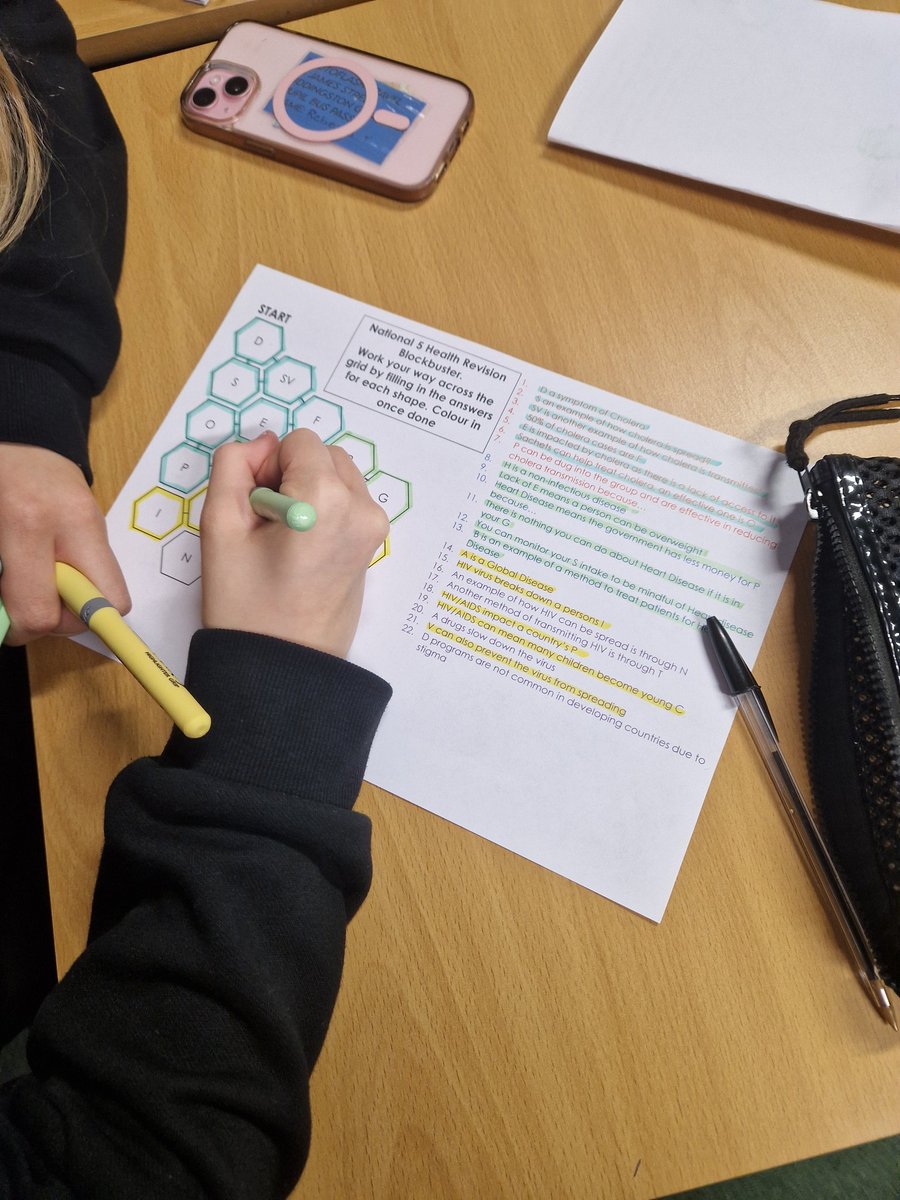 JAMES STRE
BUS PASS
START
D
S
SV
O
E
F
P
G
I
N
National 5 Health Revision
Blockbuster.
Work your way across the
grid by filling in the answers
for each shape. Colour in
once done
1. D a symptom of Cholera
2. S an example of how cholera is spread?
3. SV is another example of how cholera is transmitted
4. 50% of cholera cases are F
5. E is impacted by cholera as there is a lack of access to it
6. Sachets can help treat cholera, an effective one is O
7. P can be dug into the group and are effective in reducing
cholera transmission because...
8. H is a non-infectious disease
9. Lack of E means a person can be overweight
10. Heart Disease means the government has less money for P
because...
11. There is nothing you can do about Heart Disease if it is in
your G
12. You can monitor your S intake to be mindful of Heart disease
13. B is an example of a method to treat patients for
Disease
14. A is a Global Disease
15. HIV virus breaks down a persons I
16. An example of how HIV can be spread is through N
17. Another method of transmitting HIV is through T
18. HIV/AIDS impact a country's P
19. HIV/AIDS can mean many children become young C
20. A drugs slow down the virus
21. V can also prevent the virus from spreading
22. D programs are not common in developing countries due to
stigma